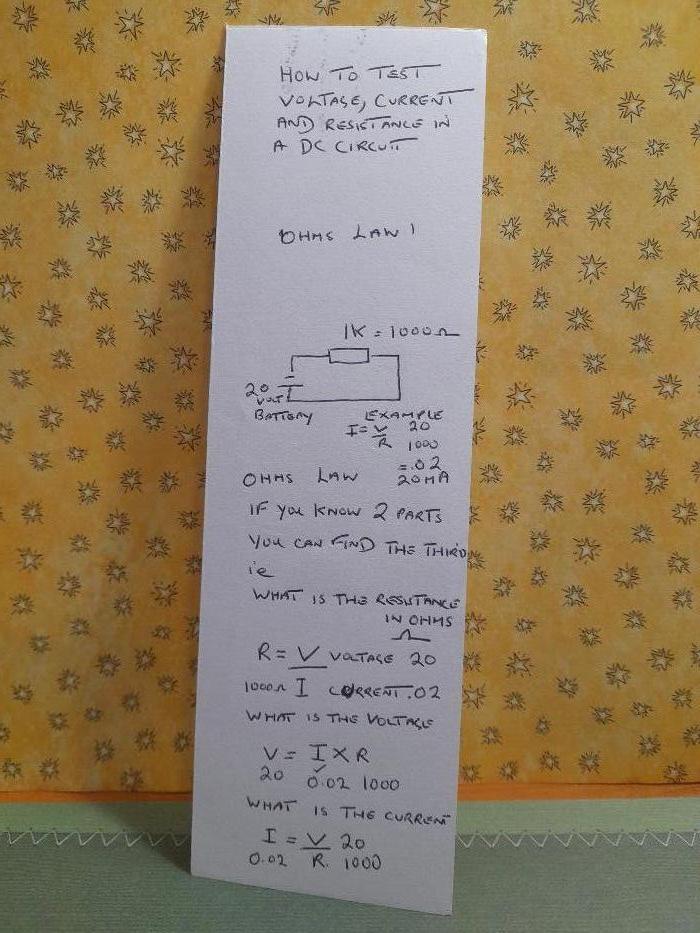 HOW TO TEST
VOLTAGE, CURRENT
AND RESISTANCE IN
A DC CIRCUIT
OHMS LAW !
1K = 1000Ω
20
VOLT
BATTERY
EXAMPLE
I = V 20
R 1000
= .02
20MA
OHMS LAW
IF YOU KNOW 2 PARTS
YOU CAN FIND THE THIRD
ie
WHAT IS THE RESISTANCE
IN OHMS
Ω
R = V VOLTAGE 20
1000Ω I CURRENT .02
WHAT IS THE VOLTAGE
V = I X R
20 0.02 1000
WHAT IS THE CURRENT
I = V 20
0.02 R. 1000